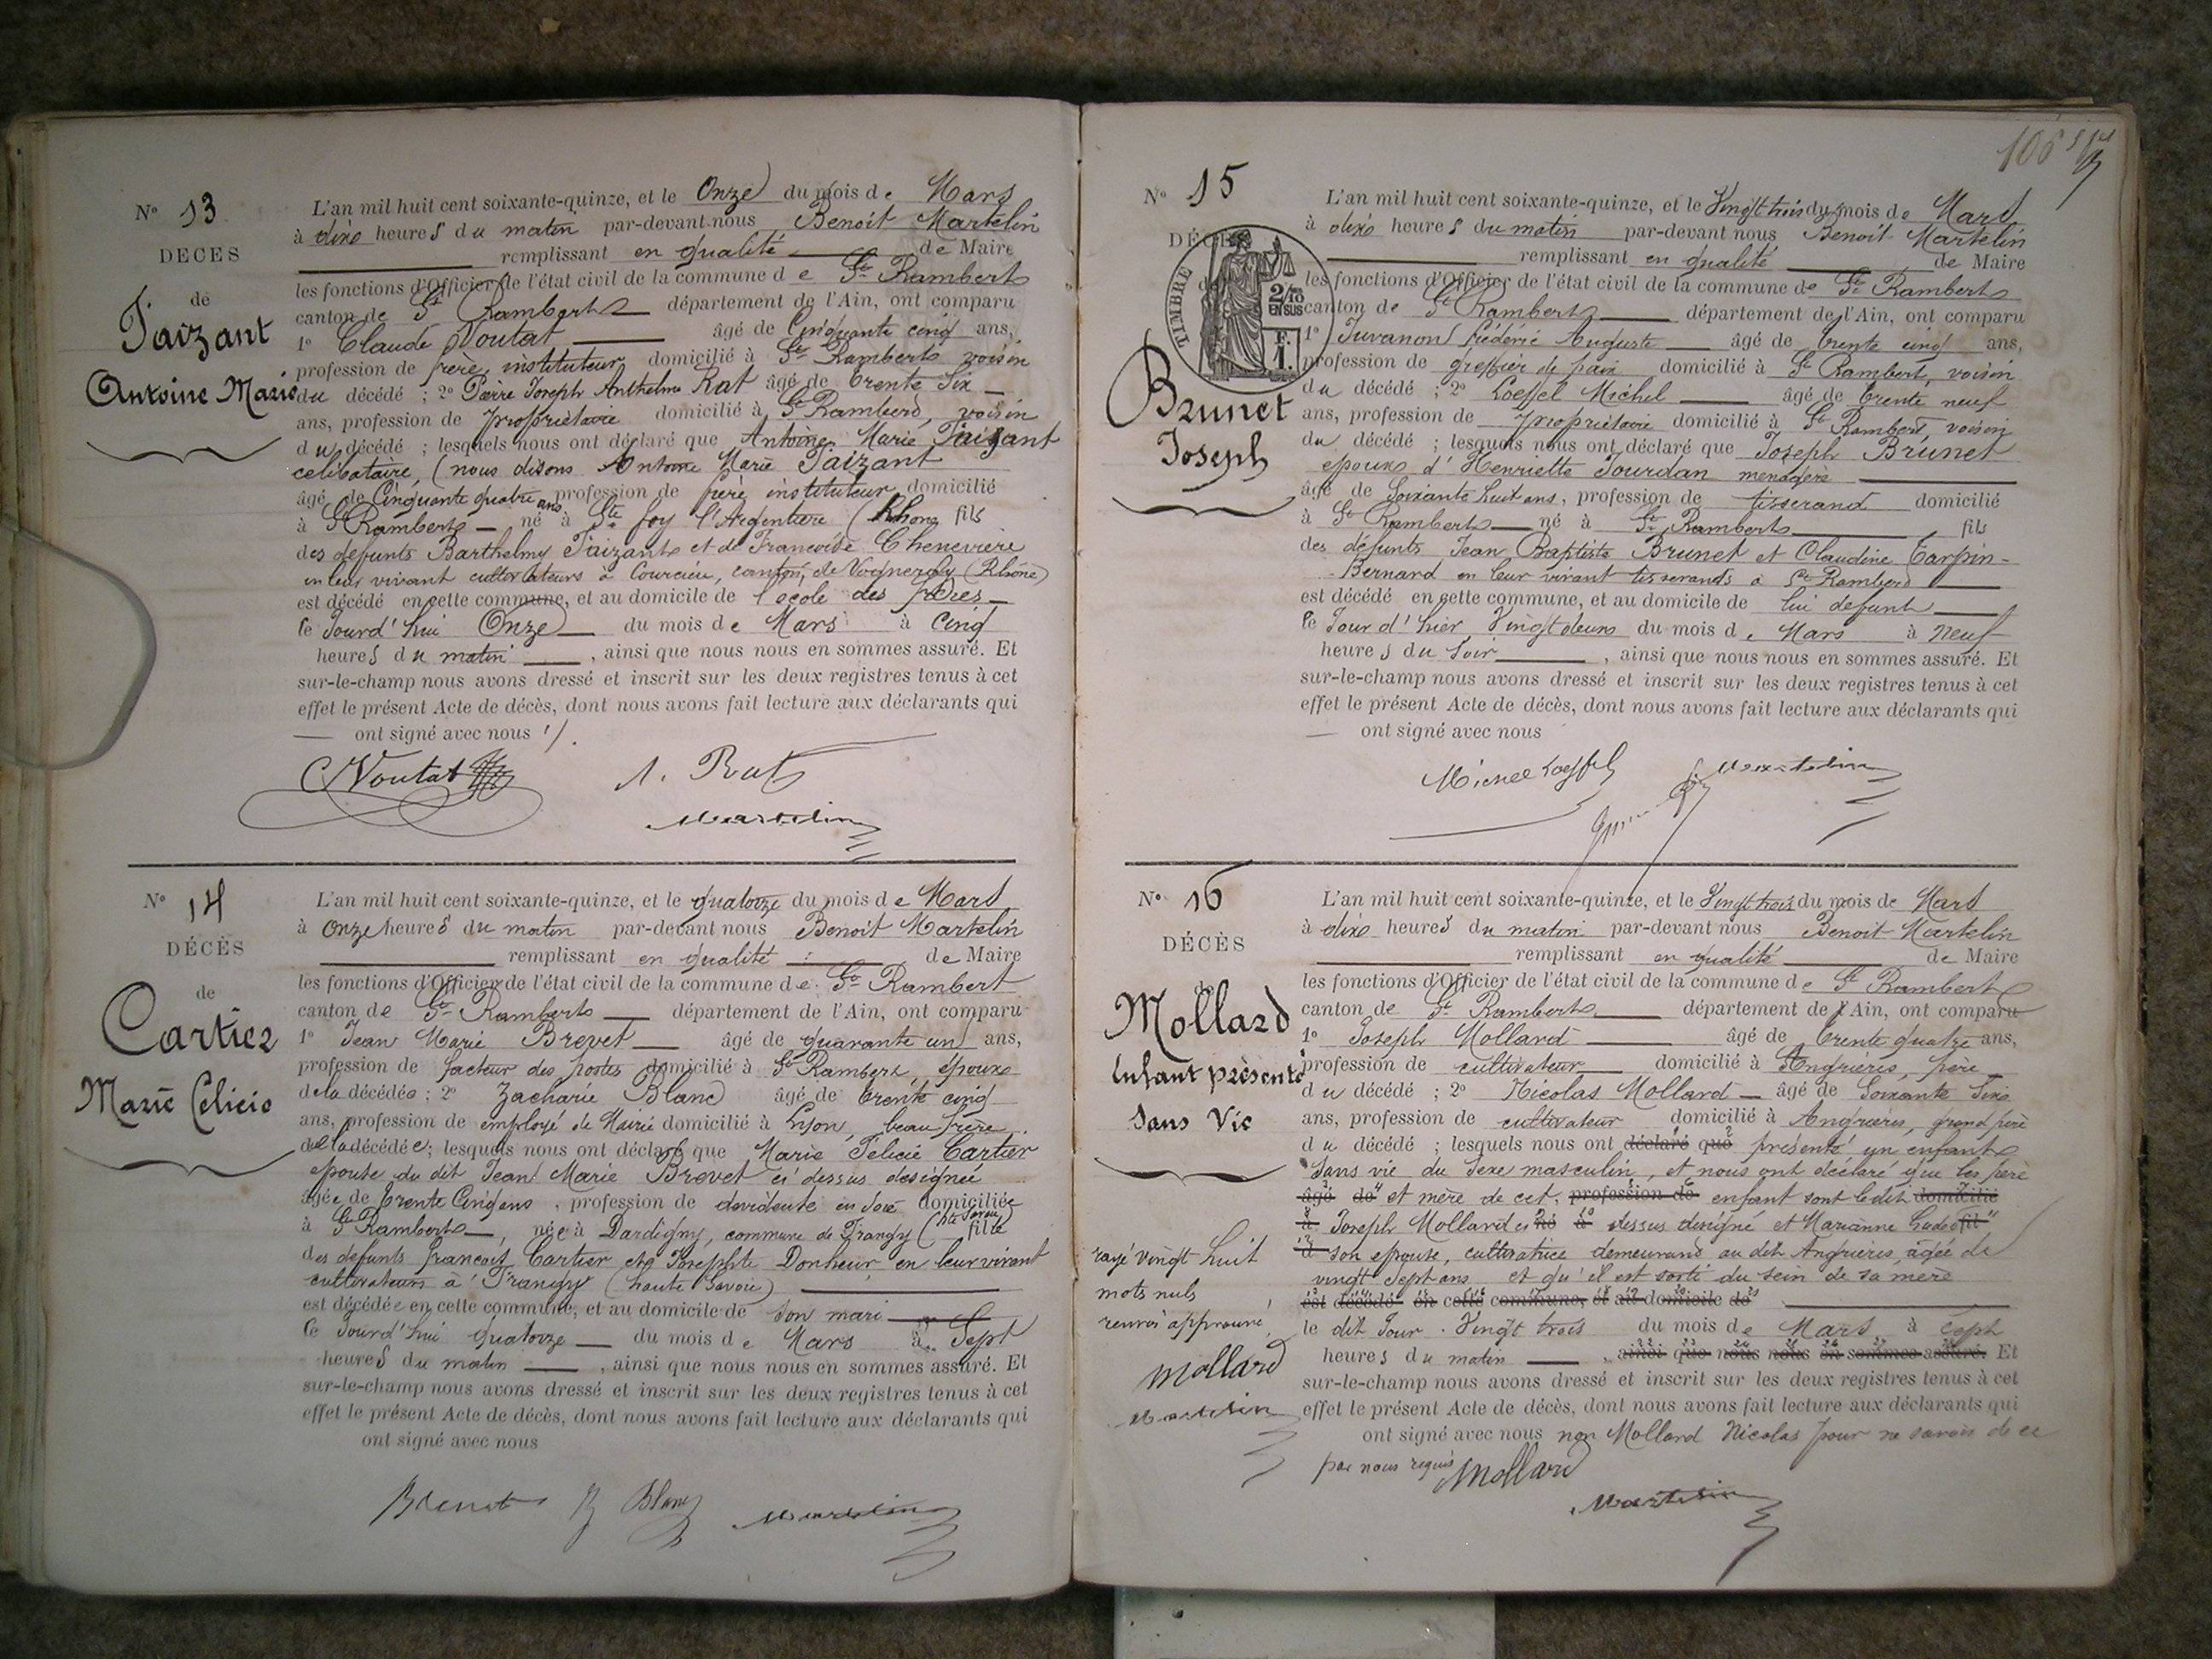 N° 13
DÉCÈS
de
Taizant
Antoine Marie
L'an mil huit cent soixante-quinze, et le Onze du mois de Mars
à dixe heures du matin par-devant-nous Benoit Martelin
remplissant en qualité de Maire
les fonctions d'Officier de l'état civil de la commune de St Rambert
canton de St Rambert département de l'Ain, ont comparu
1° Claude Voutat âgé de Cinquante cinq ans,
profession de frère instituteur domicilié à St Rambert voisin
du décédé ; 2° Pierre Joseph Anthelme Rat âgé de trente six
ans, profession de propriétaire domicilié à St Rambert, voisin
du décédé ; lesquels nous ont déclaré que Antoine Marie Taizant
celibataire, (nous disons Antoine Marie Taizant
âgé de Cinquante quatre ans profession de frère instituteur domicilié
à St Rambert né à Ste foy l'Argentiere (Rhone fils
des defunts Barthelmy Taizant et de Francoise Chenevriere
en leur vivant cultivateurs à Courzieu, canton, de Vaugneray (Rhône)
est décédé en cette commune, et au domicile de l'ecole des frères
le Jourd'hui Onze du mois de Mars à Cinq
heures du matin , ainsi que nous nous en sommes assuré. Et
sur-le-champ nous avons dressé et inscrit sur les deux registres tenus à cet
effet le présent Acte de décès, dont nous avons fait lecture aux déclarants qui
ont signé avec nous
C Voutat
A. Rat
Martelin
N° 14
DÉCÈS
de
Cartier
Marie Felicie
L'an mil huit cent soixante-quinze, et le quatorze du mois de Mars
à Onze heures du matin par-devant nous Benoit Martelin
remplissant en qualité de Maire
les fonctions d'Officier de l'état civil de la commune de St Rambert
canton de St Rambert département de l'Ain, ont comparu
1° Jean Marie Brevet âgé de quarante un ans,
profession de facteur des postes domicilié à St Rambert, époux
de la décédée ; 2° Zacharie Blanc âgé de trente cinq
ans, profession de employé de Mairie domicilié à Lyon, beau frère
de la décédée ; lesquels nous ont déclaré que Marie Felicie Cartier
epouse du dit Jean Marie Brevet ci dessus designée
âgée de trente Cinq ans , profession de devideuse en soie domiciliée
à St Rambert , née à Dardigny, commune de Frangy (hte Savoie) fille
des defunts francois Cartier et Josephte Donheur en leur vivant
cultivateurs à Frangy (haute Savoie)
est décédée en cette commune, et au domicile de son mari
le Jourd'hui quatorze du mois de Mars à Sept
heures du matin , ainsi que nous nous en sommes assuré. Et
sur-le-champ nous avons dressé et inscrit sur les deux registres tenus à cet
effet le présent Acte de décès, dont nous avons fait lecture aux déclarants qui
ont signé avec nous
Brevet Z Blanc Martelin
106
N° 15
DÉCÈS
TIMBRE
2/10
EN SUS
F.
1.
Brunet
Joseph
L'an mil huit cent soixante-quinze, et le Vingt trois du mois de Mars
à dixe heures du matin par-devant nous Benoit Martelin
remplissant en qualité de Maire
les fonctions d'Officier de l'état civil de la commune de St Rambert
canton de St Rambert département de l'Ain, ont comparu
1° Juvanon frédéric Auguste âgé de trente cinq ans,
profession de greffier de paix domicilié à St Rambert, voisin
du décédé ; 2° Loeffel Michel âgé de trente neuf
ans, profession de propriétaire domicilié à St Rambert voisin
du décédé ; lesquels nous ont déclaré que Joseph Brunet
epoux d'Henriette Jourdan menagère
âgé de Soixante huit ans, profession de tisserand domicilié
à St Rambert né à St Rambert fils
des défunts Jean Baptiste Brunet et Claudine Tarpin-
Bernard en leur vivant tisserands à St Rambert
est décédé en cette commune, et au domicile de lui defunt
le Jour d'hier Vingt deux du mois de Mars à Neuf
heures du soir , ainsi que nous nous en sommes assuré. Et
sur-le-champ nous avons dressé et inscrit sur les deux registres tenus à cet
effet le présent Acte de décès, dont nous avons fait lecture aux déclarants qui
ont signé avec nous
Michel Loeffel
Martelin
N° 16
DÉCÈS
de
Mollard
Enfant présenté
Sans Vie
L'an mil huit cent soixante-quinze, et le Vingt trois du mois de Mars
à dixe heures du matin par-devant nous Benoit Martelin
remplissant en qualité de Maire
les fonctions d'Officier de l'état civil de la commune de St Rambert
canton de St Rambert département de l'Ain, ont comparu
1° Joseph Mollard âgé de trente quatre ans,
profession de cultivateur domicilié à Angrières, père
du décédé ; 2° Nicolas Mollard âgé de Soixante Six
ans, profession de cultivateur domicilié à Angrières, grand père
du décédé ; lesquels nous ont déclaré que présenté un enfant
Sans vie du sexe masculin, et nous ont déclaré que les père
âgé de et mère de cet, profession de enfant sont le dit domicilié
à Joseph Mollard ci né à dessus designé et Marianne fils
d son epouse, cultivatrice demeurant au dit Angrières, âgée de
vingt Sept ans et qu'il est sorti du sein de sa mère
est décédé en cette commune, et au domicile de
le dit Jour Vingt trois du mois de Mars à Sept
heures du matin , ainsi que nous nous en sommes assuré. Et
sur-le-champ nous avons dressé et inscrit sur les deux registres tenus à cet
effet le présent Acte de décès, dont nous avons fait lecture aux déclarants qui
ont signé avec nous non Mollard Nicolas pour ne savoir de ce
par nous requis Mollard
Martelin
rayé vingt huit
mots nuls
renvoi approuvé
Mollard
Martelin